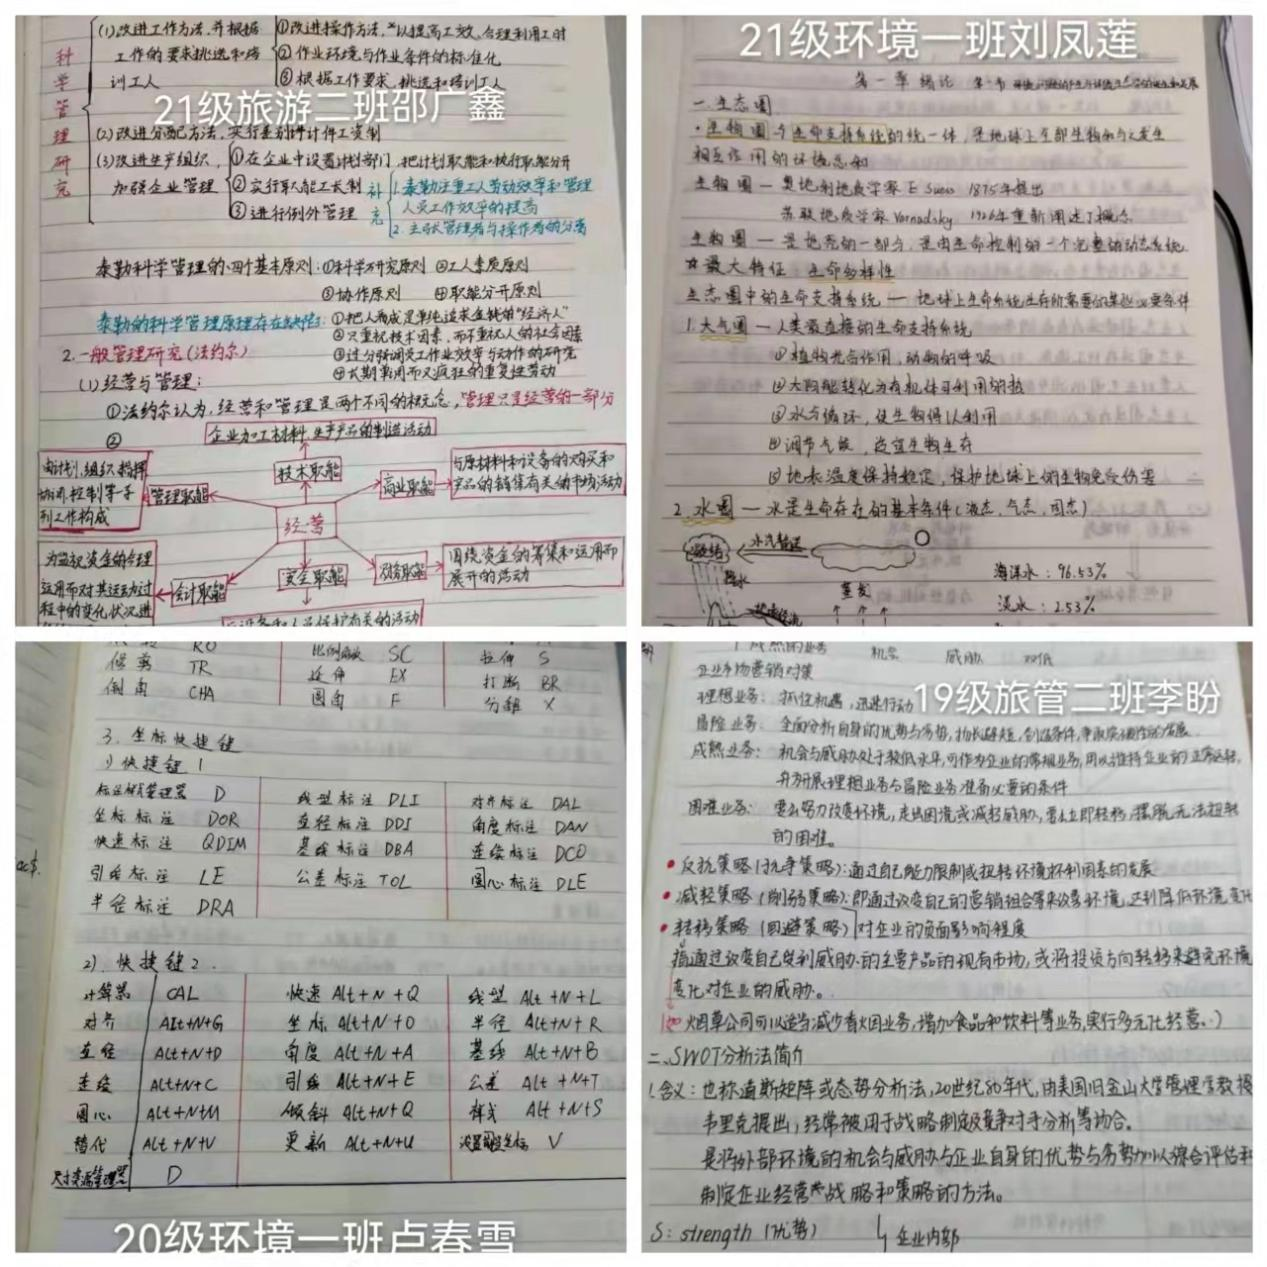 (1)改进工作方法,并根据
工作的要求挑选和培
训工人
①改进操作方法,以提高工效,合理利用工时
②作业环境与作业条件的标准化
③根据工作要求,挑选和培训工人
21级旅游二班邵广鑫
科学管理研究
(2)改进分配方法,实行差别计件工资制
(3)改进生产组织,
加强企业管理
①在企业中设置计划部门,把计划职能和执行职能分开
②实行职能工长制
③进行例外管理
补充
1.泰勒注重工人劳动效率和管理
人员工作效率的提高
2.主张管理者与操作者的分离
泰勒科学管理的四个基本原则:①科学研究原则 ②工人素质原则
③协作原则 ④职能分开原则
泰勒的科学管理原理存在缺陷:①把人看成是单纯追求金钱的“经济人”
②只重视技术因素,而不重视人的社会因素
③过分强调员工作业效率与动作的研究
④长期乘用而又疯狂的重复性劳动
2.一般管理研究(法约尔)
(1)经营与管理:
①法约尔认为,经营和管理是两个不同的概念,管理只是经营的一部分
②
企业加工材料,生产产品的制造活动
由计划,组织,指挥
协调,控制等一系
列工作构成
管理职能
技术职能
商业职能
与原材料和设备的购买和
产品的销售有关的市场活动
经营
为监视资金的合理
运用而对其运动过
程中的变化状况进
会计职能
安全职能
财务职能
围绕资金的筹集和运用而
展开的活动
设备和人员保护有关的活动
21级环境一班刘凤莲
第一章 绪论 第一节
一.生态圈
·生物圈与生命支持系统的统一体,是地球上全部生物和与之发生
相互作用的环境总和
生物圈—奥地利地质学家 E Suess 1875年提出
苏联地质学家 Vornadsky 1926年重新阐述了概念
生物圈—是地壳的一部分,是由生命控制的一个完整的动态系统
☆最大特征 生命多样性
生态圈中的生命支持系统—地球上生命系统生存所需要的某些必要条件
1.大气圈—人类最直接的生命支持系统
①植物光合作用,动物的呼吸
②太阳能转化为有机体可利用的热
③水分循环,使生物得以利用
④调节气候,适宜生物生存
⑤地表温度保持稳定,保护地球上的生物免受伤害
2.水圈—水是生命存在的基本条件(液态,气态,固态)
凝结
水汽输送
降水
蒸发
地表径流
海洋水:96.53%
淡水:2.53%
修剪 TR
倒角 CHA
比例缩放 SC
延伸 EX
圆角 F
拉伸 S
打断 BR
分解 X
3.坐标快捷键
1)快捷键1
标注样式管理器 D 线型标注 DLI 对齐标注 DAL
坐标标注 DOR 直径标注 DDI 角度标注 DAN
快速标注 QDIM 基线标注 DBA 连续标注 DCO
引线标注 LE 公差标注 TOL 圆心标注 DLE
半径标注 DRA
2).快捷键2.
计算器 CAL 快速 Alt+N+Q 线型 Alt+N+L
对齐 Alt+N+G 坐标 Alt+N+O 半径 Alt+N+R
直径 Alt+N+D 角度 Alt+N+A 基线 Alt+N+B
连续 Alt+N+C 引线 Alt+N+E 公差 Alt+N+T
圆心 Alt+N+M 倾斜 Alt+N+Q 样式 Alt+N+S
替代 Alt+N+V 更新 Alt+N+U 设置坐标 V
尺寸资源管理器 D
20级环境一班卢春雪
机会 威胁
企业市场营销对策
19级旅管二班李盼
理想业务:抓住机遇,迅速行动
冒险业务:全面分析自身的优势与劣势,扬长避短,创造条件,争取突破性的发展.
成熟业务:机会与威胁处于较低水平,可作为企业的常规业务,用以维持企业的正常运转,
并为开展理想业务与冒险业务准备必要的条件
困难业务:要么努力改变环境,走出困境或减轻威胁,要么立即转移,摆脱无法扭转
的困难.
•反抗策略(抗争策略):通过自己能力限制或扭转环境不利因素的发展
•减轻策略(削弱策略):即通过改变自己的营销组合等来改善环境,达到降低环境变化
•转移策略(回避策略) 对企业的负面影响程度
指通过改变自己受到威胁的主要产品的现有市场,或将投资方向转移来避免环境
变化对企业的威胁。
(如烟草公司可以适当减少香烟业务,增加食品和饮料等业务,实行多元化经营。)
二、SWOT分析法简介
1.含义:也称道斯矩阵或态势分析法,20世纪80年代,由美国旧金山大学管理学教授
韦里克提出,经常被用于战略制定及竞争对手分析等场合。
是将外部环境的机会与威胁与企业自身的优势与劣势加以综合评估和
制定企业经营战略和策略的方法。
S:strength(优势) 企业内部